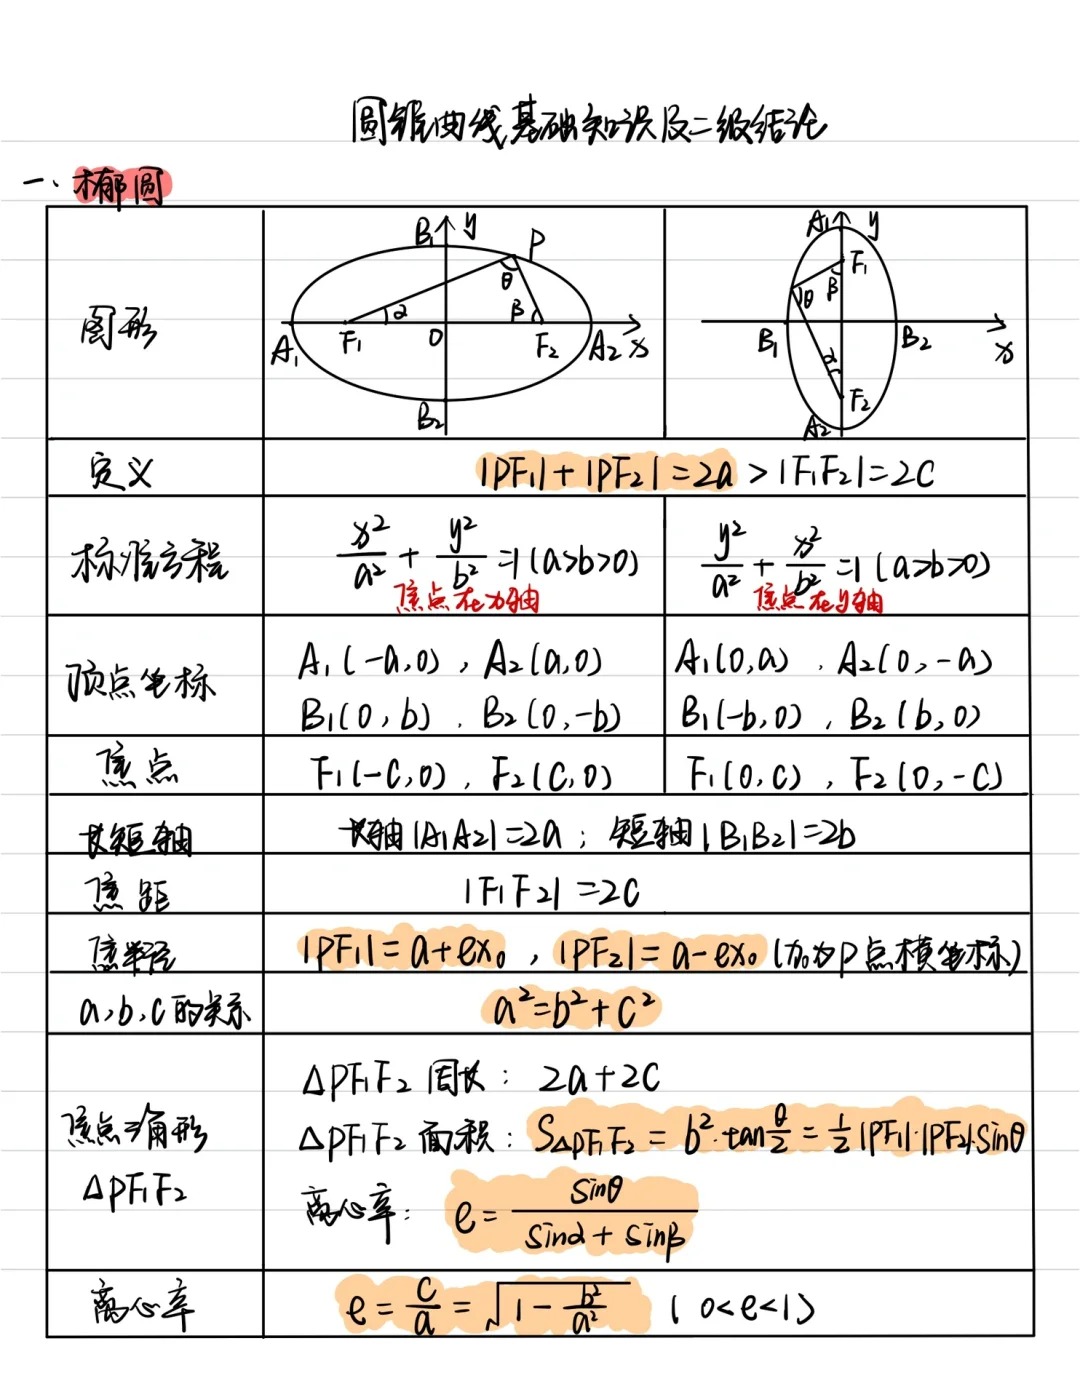 圆锥曲线基础知识及二级结论
一、椭圆
图形
B₁ y P θ α β A₁ F₁ O F₂ A₂ x B₂
A₁ y F₁ β θ B₁ B₂ x α F₂ A₂
定义
|PF₁|+|PF₂|=2a>|F₁F₂|=2c
标准方程
x²/a² + y²/b² =1 (a>b>0)
焦点在x轴
y²/a² + x²/b² =1 (a>b>0)
焦点在y轴
顶点坐标
A₁(-a,0), A₂(a,0)
B₁(0,b), B₂(0,-b)
A₁(0,a), A₂(0,-a)
B₁(-b,0), B₂(b,0)
焦点
F₁(-c,0), F₂(c,0)
F₁(0,c), F₂(0,-c)
长短轴
长轴|A₁A₂|=2a; 短轴|B₁B₂|=2b
焦距
|F₁F₂|=2c
焦半径
|PF₁|=a+ex₀, |PF₂|=a-ex₀ (x₀为P点横坐标)
a,b,c的关系
a²=b²+c²
焦点三角形
△PF₁F₂
△PF₁F₂周长: 2a+2c
△PF₁F₂面积: S△PF₁F₂ = b²·tan θ/2 = 1/2|PF₁|·|PF₂|·sinθ
离心率: e= sinθ/(sinα+sinβ)
离心率
e= c/a = √(1- b²/a²) (0<e<1)